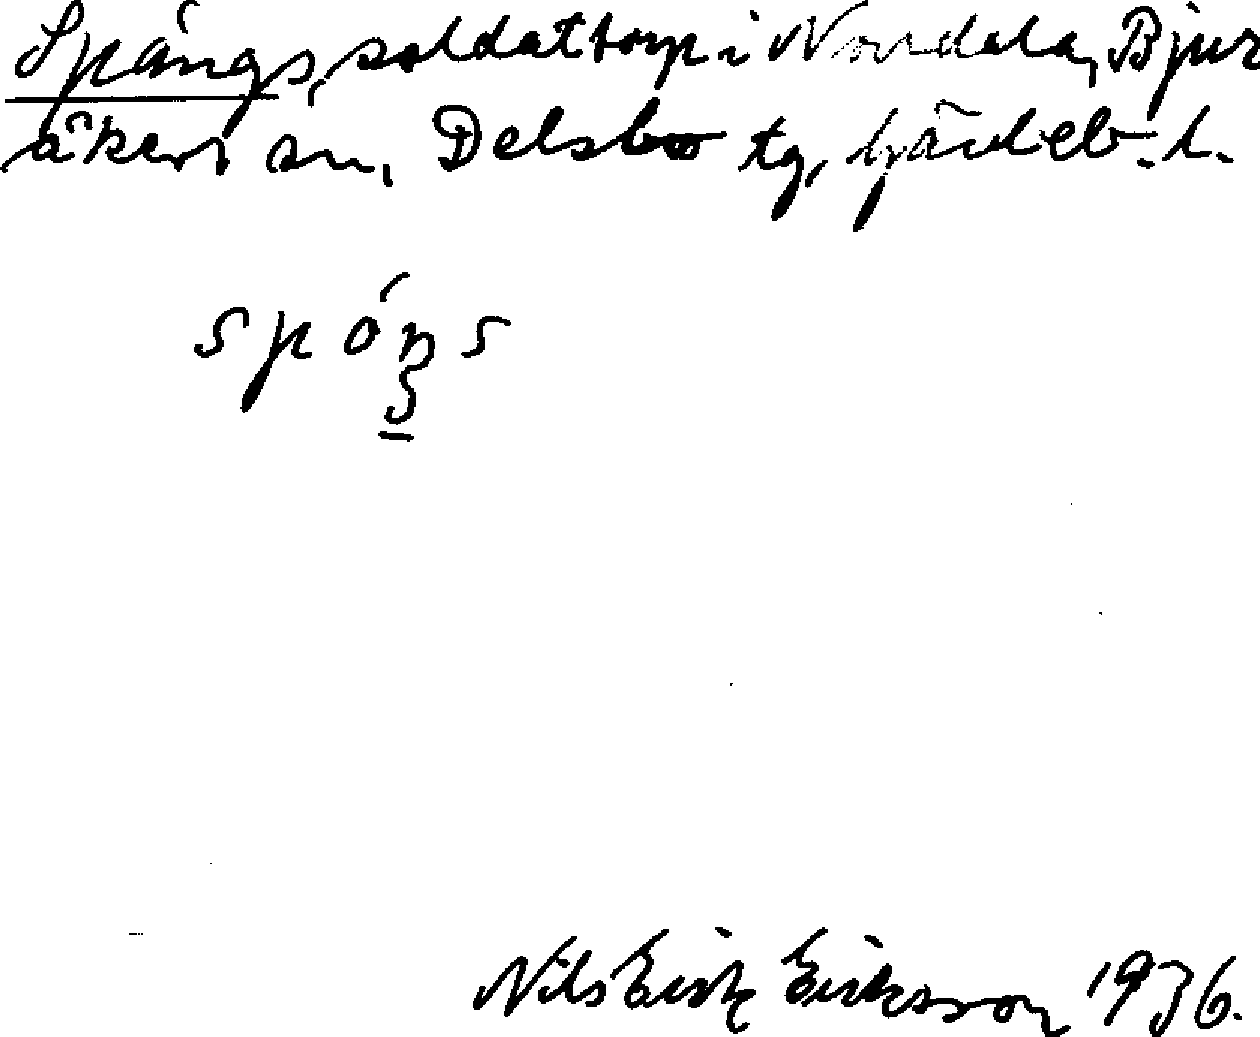 Spångs, soldattorp i Norrdala, Bjur
åkers sn, Delsbo tg, Gävleb. l.
spóŋs
Nils Erik Eriksson 1936.